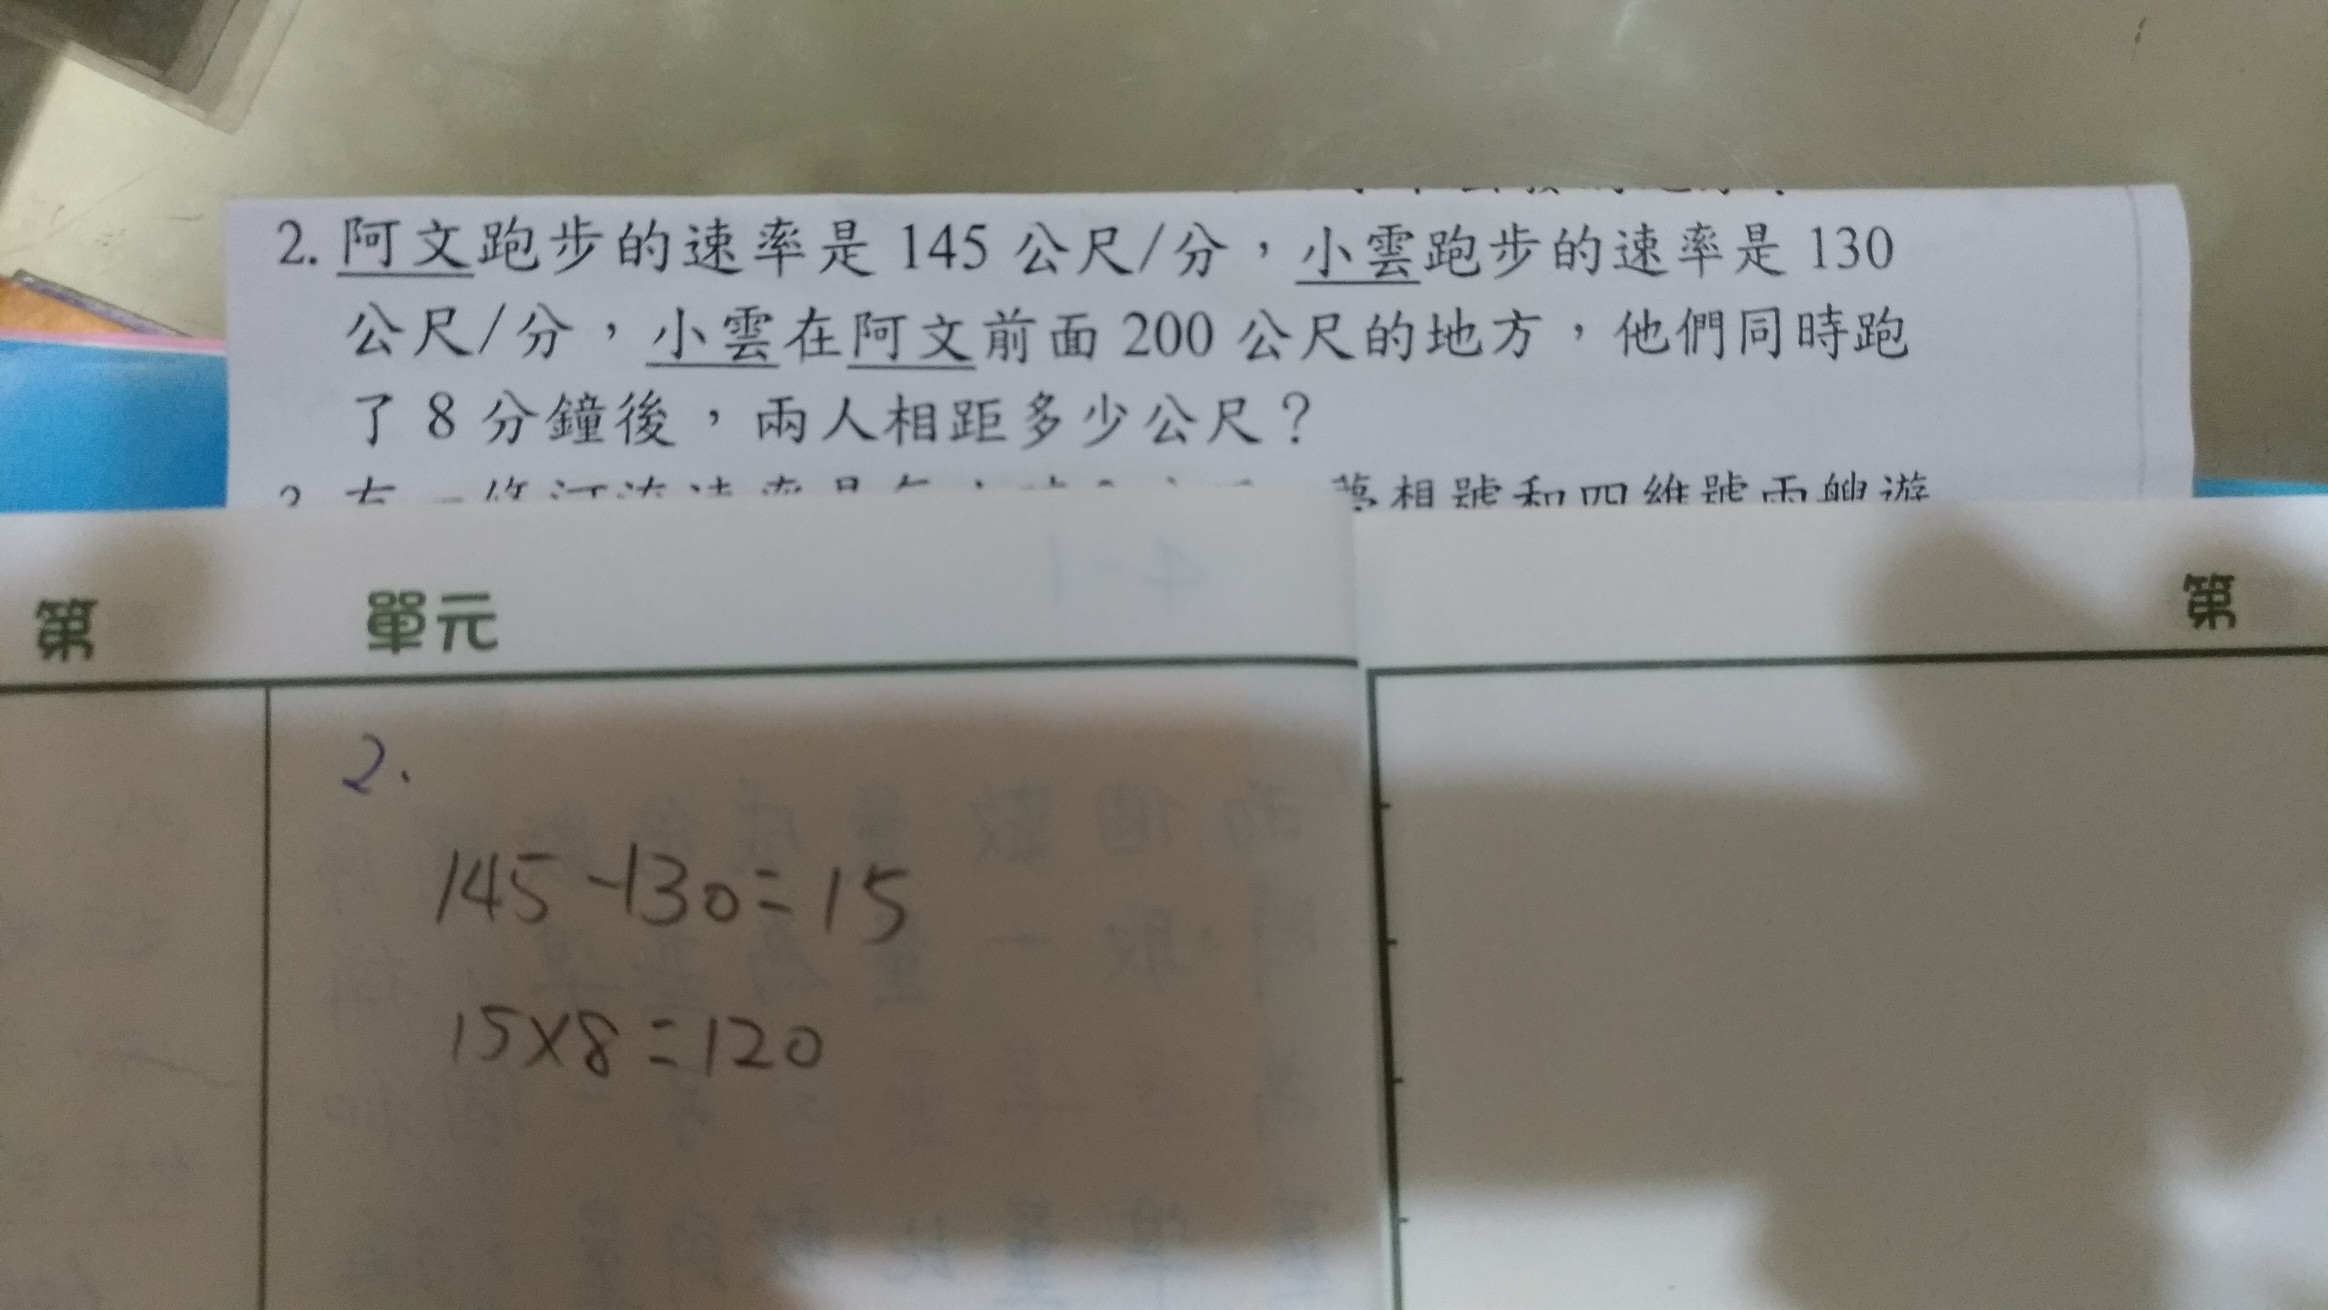 2. 阿文跑步的速率是 145 公尺/分，小雲跑步的速率是 130
公尺/分，小雲在阿文前面 200 公尺的地方，他們同時跑
了 8 分鐘後，兩人相距多少公尺？
夢想號和四維號兩艘遊
第 單元
第
2.
145-130=15
15×8=120